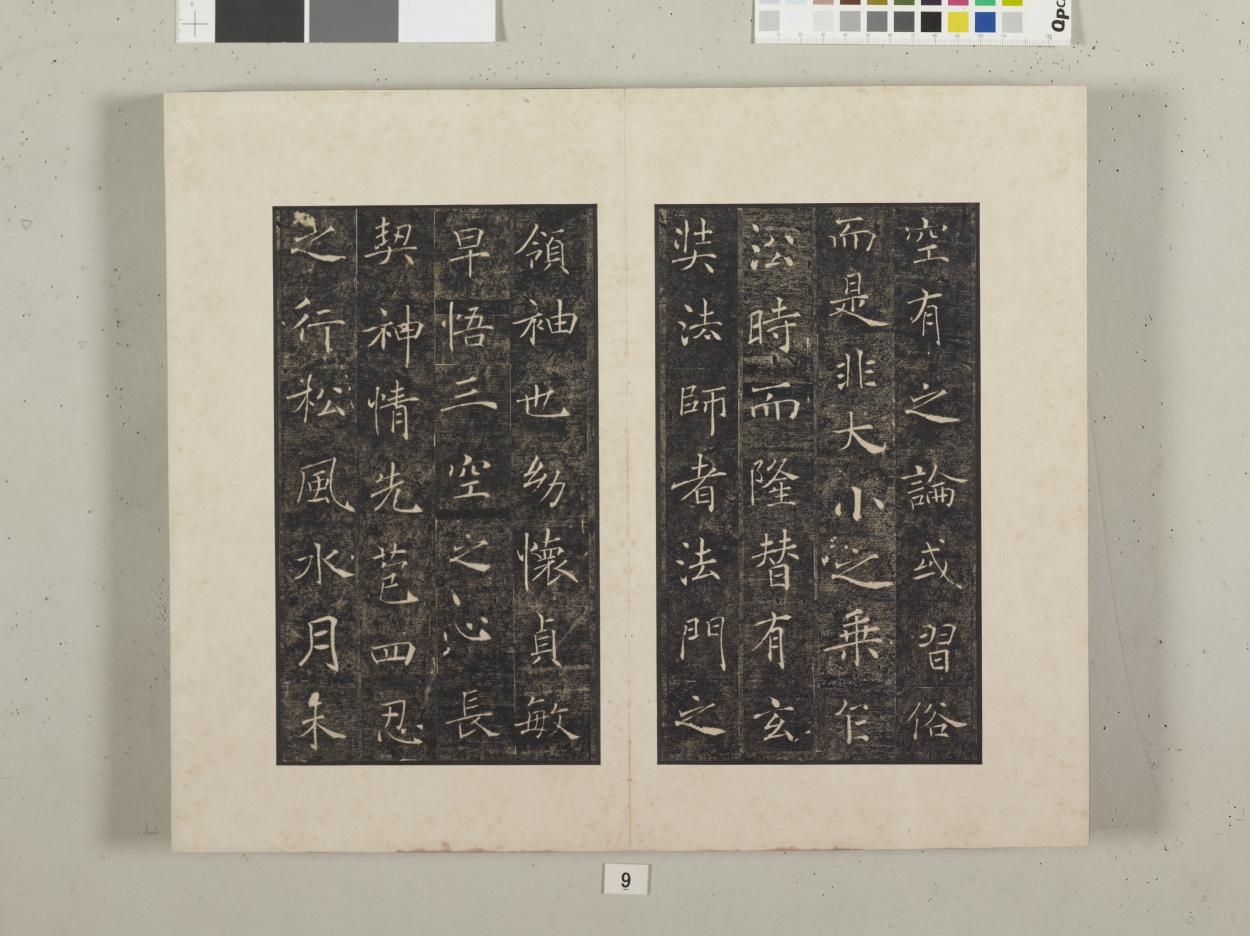 空有之論或習俗
而是非大小之乗乍
沿時而隆替有玄
奘法師者法門之
領袖也幼懷貞敏
早悟三空之心長
契神情先苞四忍
之行松風水月未
9